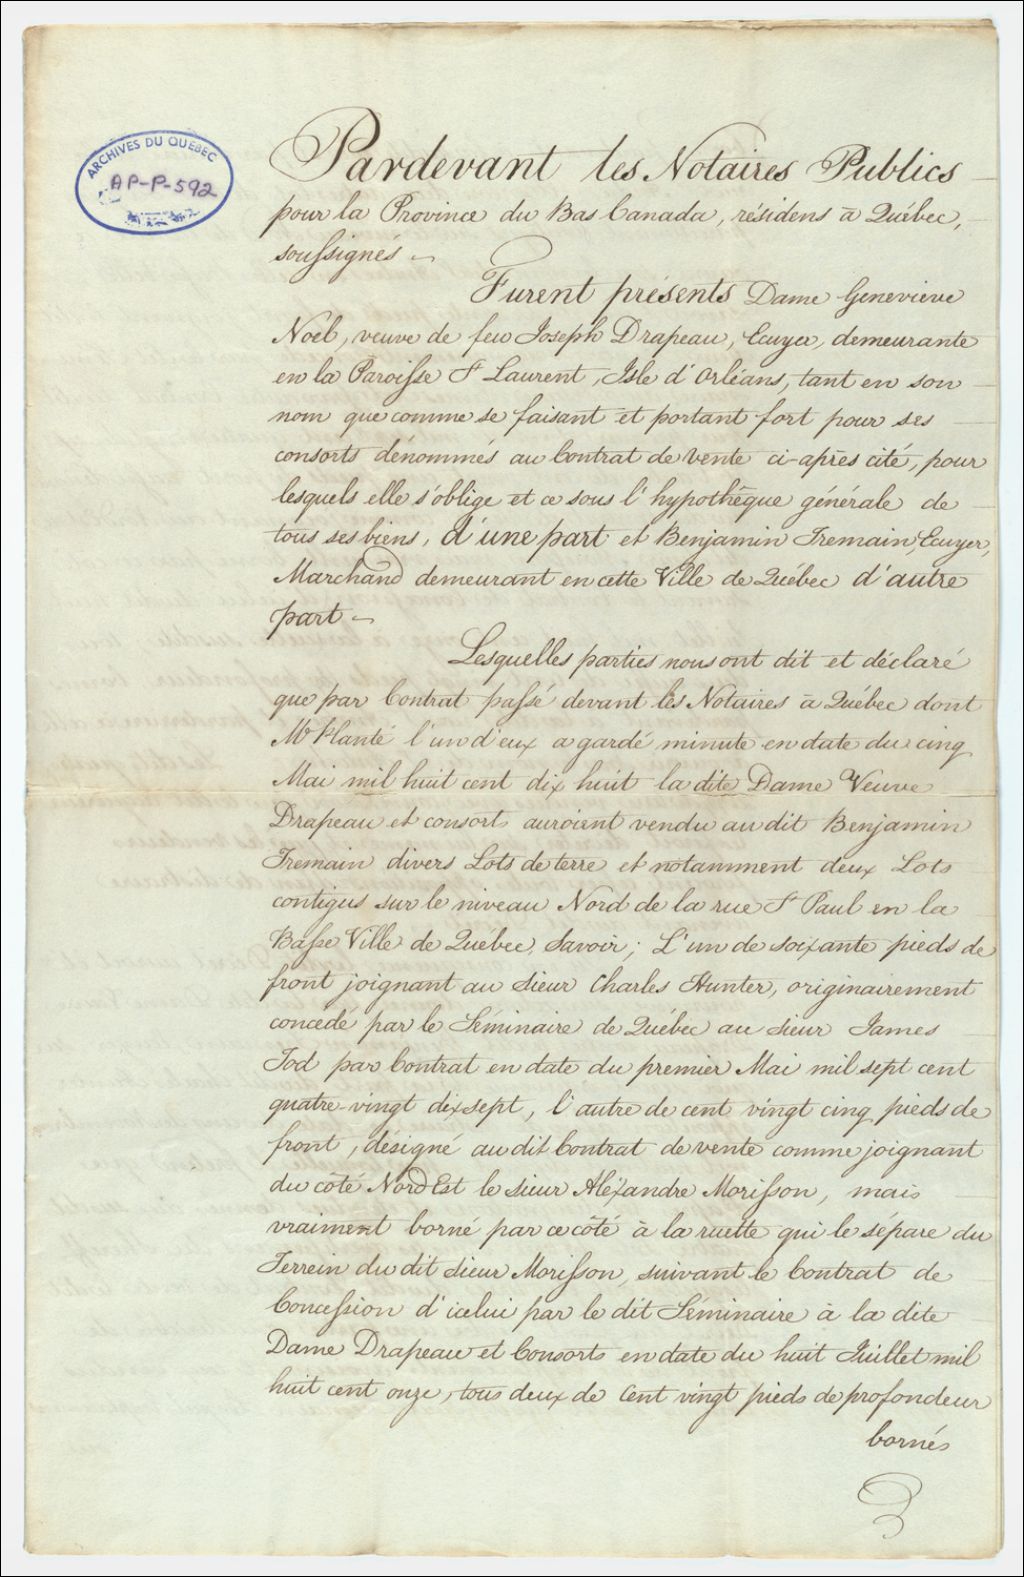 ARCHIVES DU QUÉBEC
AP-P-592
Pardevant les Notaires Publics
pour la Province du Bas Canada, résidens à Québec,
soussignés
Furent présents Dame Geneviève
Noël, veuve de feu Joseph Drapeau, Ecuyer, demeurante
en la Paroisse St Laurent, Isle d'Orléans, tant en son
nom que comme se faisant et portant fort pour ses
consorts dénommés au Contrat de vente ci-après cité, pour
lesquels elle s'oblige et ce sous l'hypothêque générale de
tous ses biens, d'une part et Benjamin Tremain, Ecuyer,
Marchand demeurant en cette Ville de Québec d'autre
part
Lesquelles parties nous ont dit et déclaré
que par Contrat passé devant les Notaires à Québec dont
Mr Planté l'un d'eux a gardé minute en date du cinq
Mai mil huit cent dix huit la dite Dame Veuve
Drapeau et consorts auroient vendu au dit Benjamin
Tremain divers Lots de terre et notamment deux Lots
contigus sur le niveau Nord de la rue St Paul en la
Basse Ville de Québec, Savoir; L'un de soixante pieds de
front joignant au Sieur Charles Hunter, originairement
concédé par le Séminaire de Québec au Sieur James
Tod par Contrat en date du premier Mai mil sept cent
quatre-vingt dix sept, l'autre de cent vingt cinq pieds de
front, désigné au dit Contrat de vente comme joignant
du côté Nord Est le Sieur Aléxandre Morisson, mais
vraiment borné par ce côté à la ruette qui le sépare du
Terrein du dit Sieur Morisson, suivant le Contrat de
Concession d'icelui par le dit Séminaire à la dite
Dame Drapeau et Consorts en date du huit Juillet mil
huit cent onze, tous deux de Cent vingt pieds de profondeur
bornés